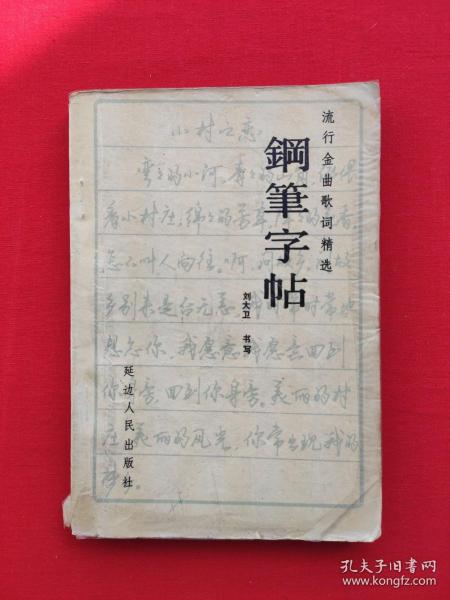 流行金曲歌词精选
鋼筆字帖
刘大卫 书写
延边人民出版社
小村之恋
弯弯的小河，青青的山冈，依偎
着小村庄，绵绵的芳草
怎不叫人向往。啊，问
乡别来是否无恙 时常地
想念你，我愿意我愿意回到
你 旁，回到你身旁。美丽的村
庄，美丽的风光，你常出现我的
梦
孔夫子旧书网
www.kongfz.com